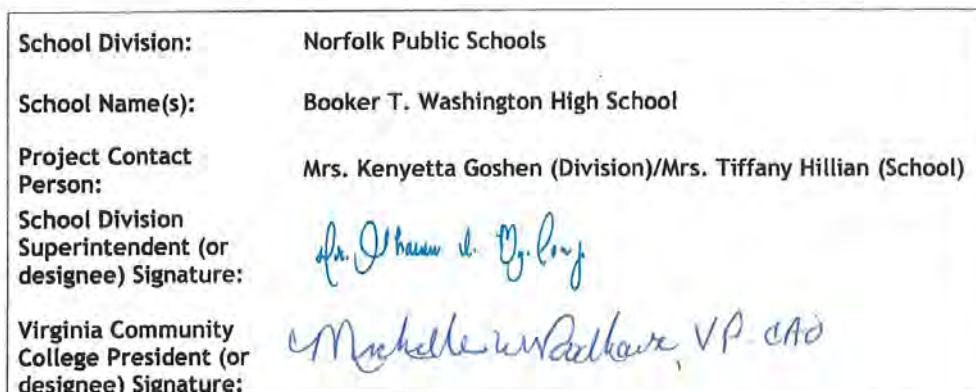 School Division: Norfolk Public Schools
School Name(s): Booker T. Washington High School
Project Contact
Person: Mrs. Kenyetta Goshen (Division)/Mrs. Tiffany Hillian (School)
School Division
Superintendent (or
designee) Signature: Dr.
Virginia Community
College President (or VP CAO
designee) Signature: